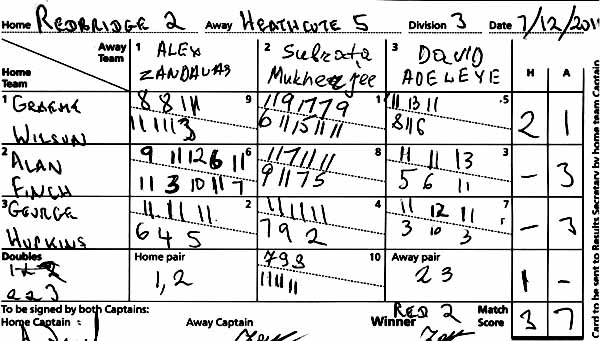 Home REDBRIDGE 2 Away HEATHCOTE 5 Division 3 Date 7/12/2011
Away Team
Home Team
1 ALEX ZANDAVAS
2 Subrata Mukherjee
3 DAVID ADELEYE
H A
1 GRAEME WILSON
8 8 11 9
11 11 3
11 9 17 7 9 1
6 11 15 11 11
11 13 11 5
8 11 6
2 1
2 ALAN FINCH
9 11 12 6 11 6
11 3 10 11 7
11 7 11 11 8
9 11 7 5
11 11 13 3
5 6 11
- 3
3 GEORGE HUPKINS
11 11 11 2
6 4 5
11 11 11 4
7 9 2
11 12 11 7
3 10 3
- 3
Doubles
2 2 3
Home pair
1, 2
7 9 3 10
11 11 11
Away pair
2 3
1 -
To be signed by both Captains:
Home Captain:
Away Captain
Winner RED 2
Match Score 3 7
Card to be sent to Results Secretary by home team Captain